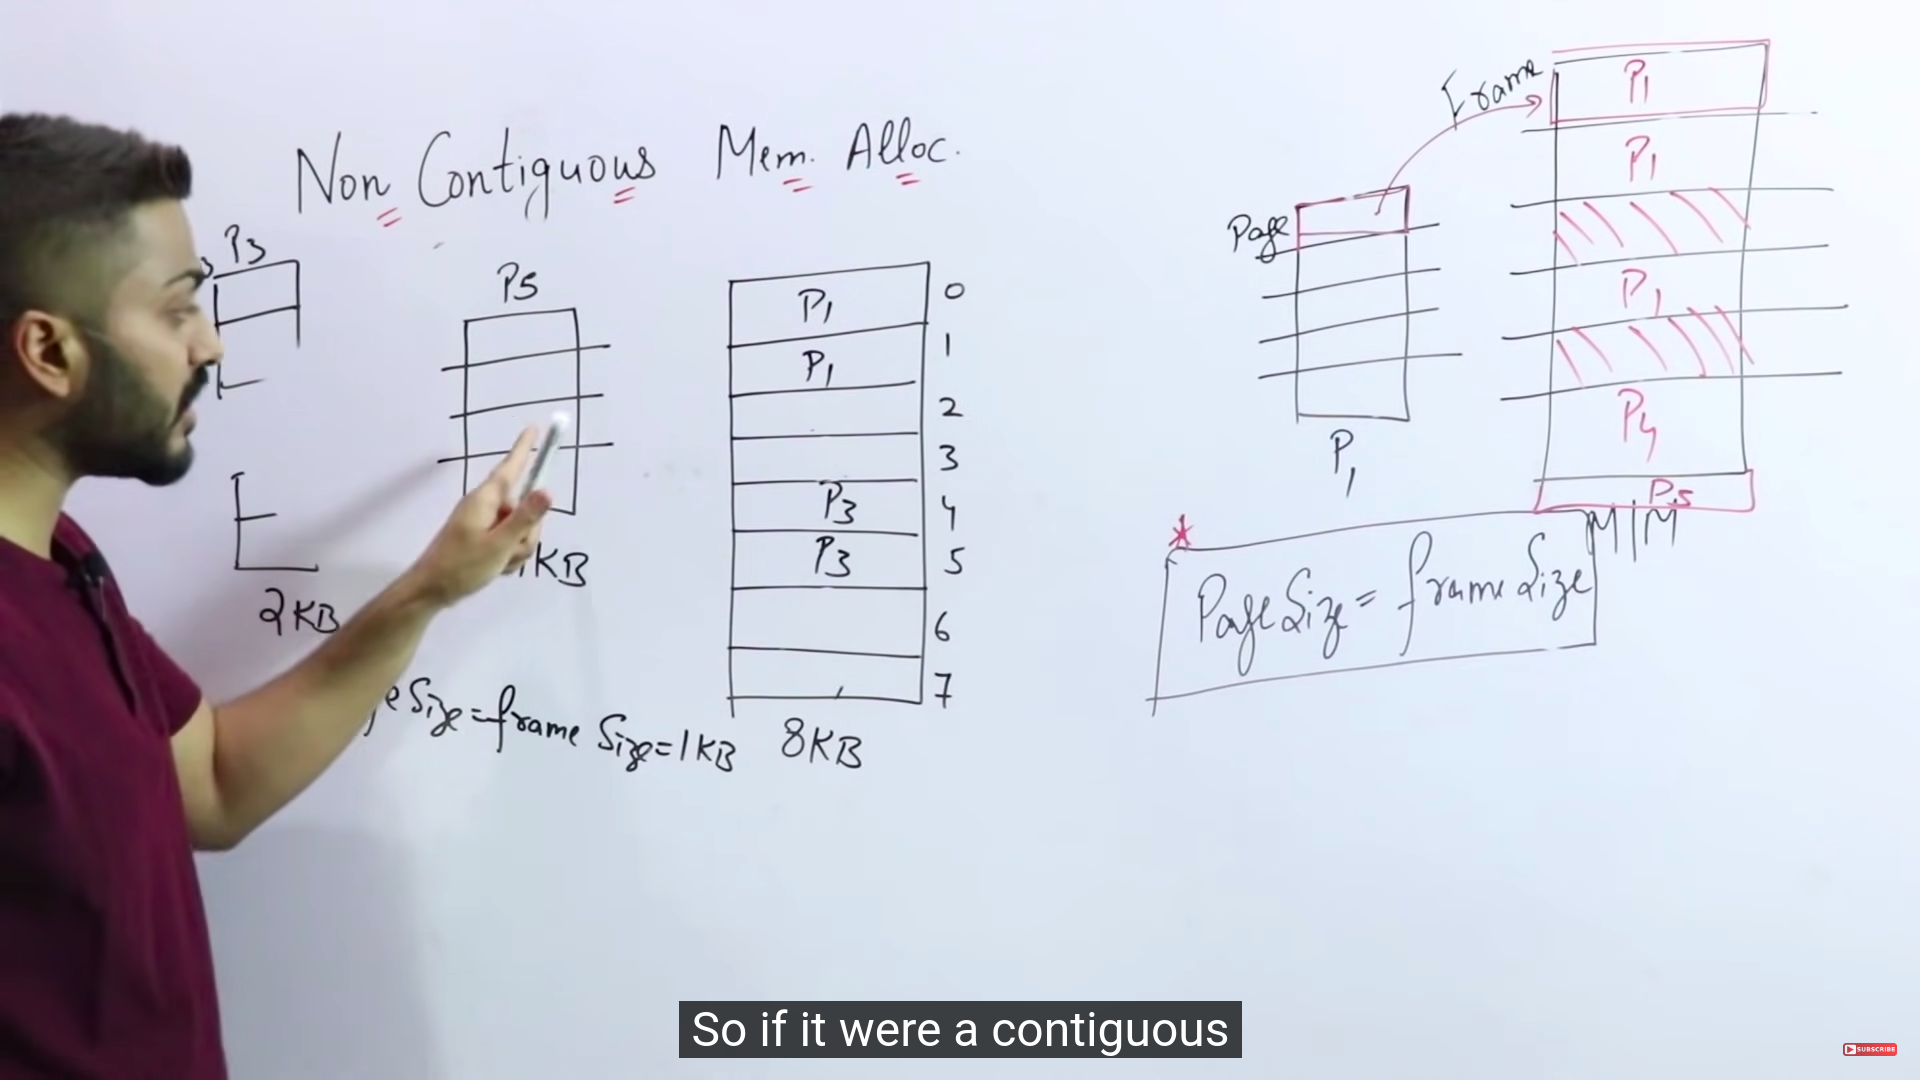 Non Contiguous Mem. Alloc.
P3
P5
2KB
KB
P1
P1
P3
P3
0
1
2
3
4
5
6
7
8KB
e Size = frame Size = 1KB
Page
P1
Frame
P1
P1
P1
P4
P5
M/M
* Page Size = frame Size
So if it were a contiguous
SUBSCRIBE